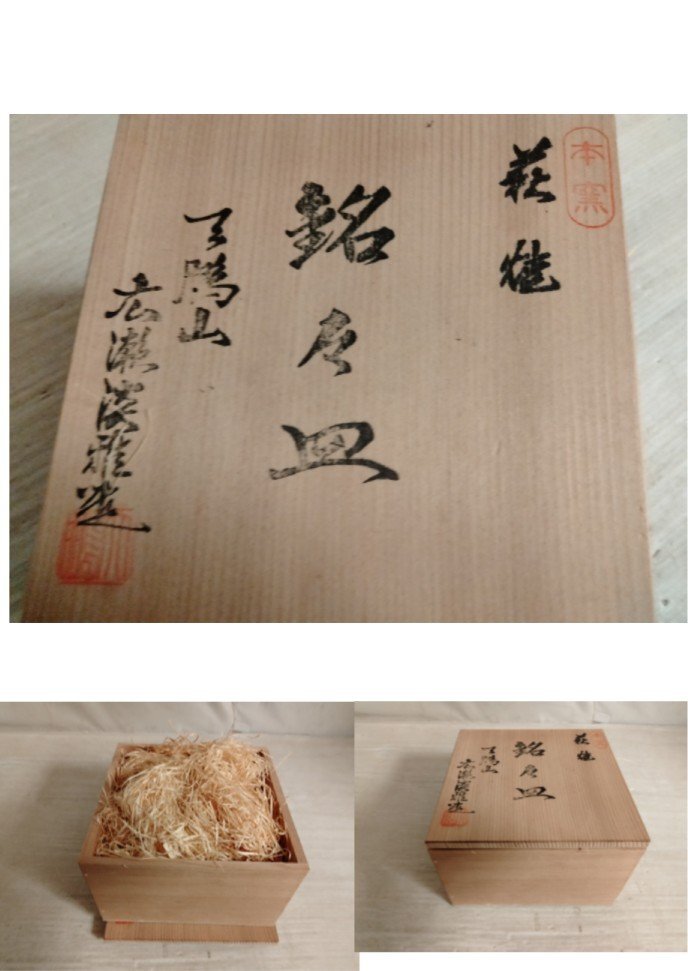 本窯
萩焼
銘々皿
天鵬山
広瀬淡雅造
萩焼
銘々皿
天鵬山
広瀬淡雅造